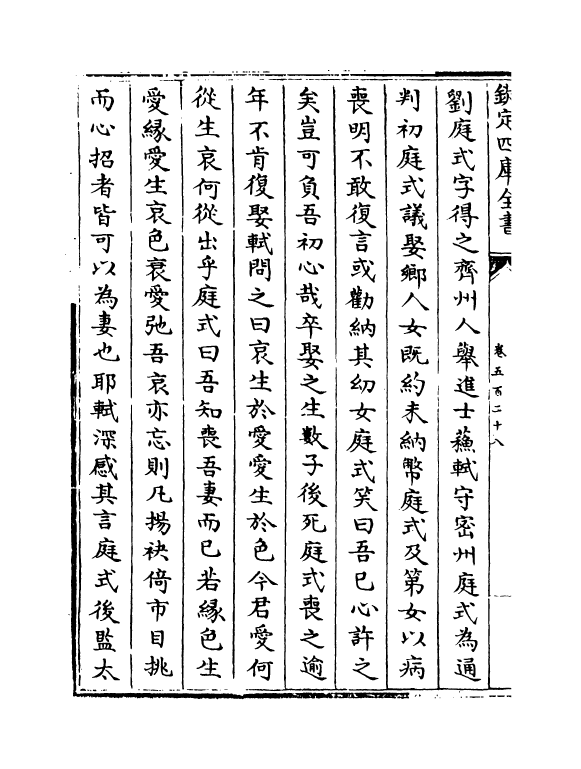 欽定四庫全書
卷五百二十八
劉庭式字得之齊州人舉進士蘓軾守密州庭式為通
判初庭式議娶鄉人女既約未納幣庭式及第女以病
喪明不敢復言或勸納其幼女庭式笑曰吾已心許之
矣豈可負吾初心哉卒娶之生數子後死庭式喪之逾
年不肯復娶軾問之曰哀生於愛愛生於色今君愛何
從生哀何從出乎庭式曰吾知喪吾妻而已若緣色生
愛緣愛生哀色衰愛弛吾哀亦忘則凡揚袂倚市目挑
而心招者皆可以為妻也耶軾深感其言庭式後監太